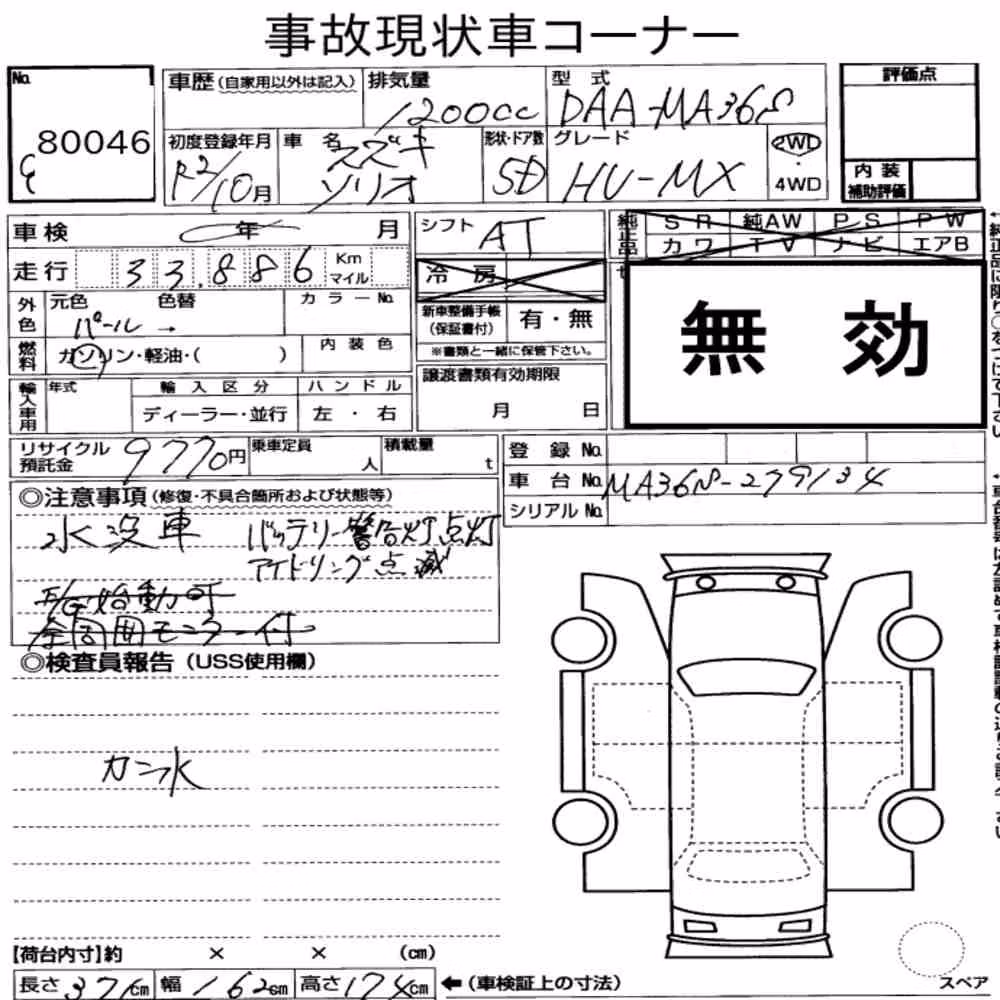 事故現状車コーナー
No.
80046
車歴(自家用以外は記入)
排気量
1200cc
型式
DAA-MA36S
評価点
初度登録年月
R2/10月
車名
スズキ
ソリオ
形状・ドア数
5D
グレード
HV-MX
2WD
・
4WD
内装
補助評価
車検
年 月
シフト
AT
純正品
SR 純AW PS PW
カワ TV ナビ エアB
走行
33,886
Km
マイル
冷房
無効
外色
元色
パール →
色替
カラーNo.
新車整備手帳
(保証書付)
有・無
※書類と一緒に保管下さい。
燃料
ガソリン・軽油・( )
内装色
譲渡書類有効期限
月 日
輸入車用
年式
輸入区分
ディーラー・並行
ハンドル
左・右
リサイクル
預託金
9770円
乗車定員
人
積載量
t
登録No.
車台No.
MA36S-279134
シリアルNo.
◎注意事項(修復・不具合箇所および状態等)
水没車 バッテリー警告灯点灯
アイドリング点滅
E/G始動可
全周囲モニター付
◎検査員報告(USS使用欄)
カン水
【荷台内寸】約 × × (cm)
長さ371cm 幅162cm 高さ174cm ←(車検証上の寸法)
スペア